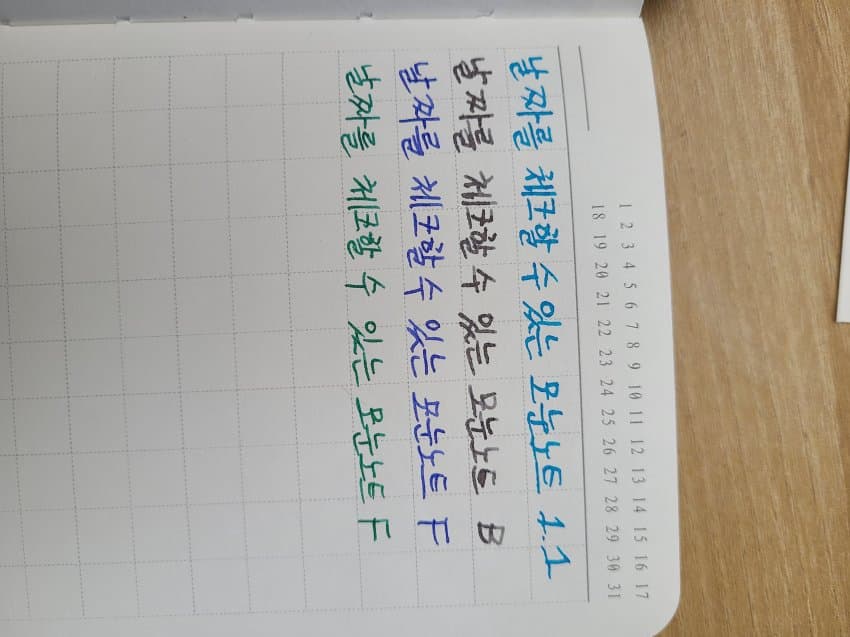 1 2 3 4 5 6 7 8 9 10 11 12 13 14 15 16 17
18 19 20 21 22 23 24 25 26 27 28 29 30 31
날짜를 체크할 수 있는 모눈노트 1.1
날짜를 체크할 수 있는 모눈노트 B
날짜를 체크할 수 있는 모눈노트 F
날짜를 체크할 수 있는 모눈노트 F